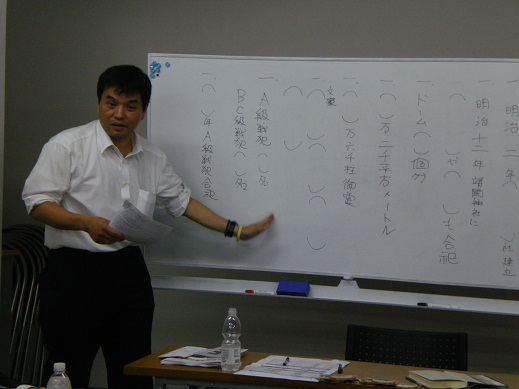 一、明治二年（　）社建立
一、明治十二年靖国神社に
（　）や（　）も合祀
一、ドーム（　）個分
一、（　）万二千平方メートル
一、（　）万六千柱御霊
一、（　）（　）（　）
（　）
一、A級戦犯（　）名
BC級戦犯（　）名
一、（　）年A級戦犯合祀